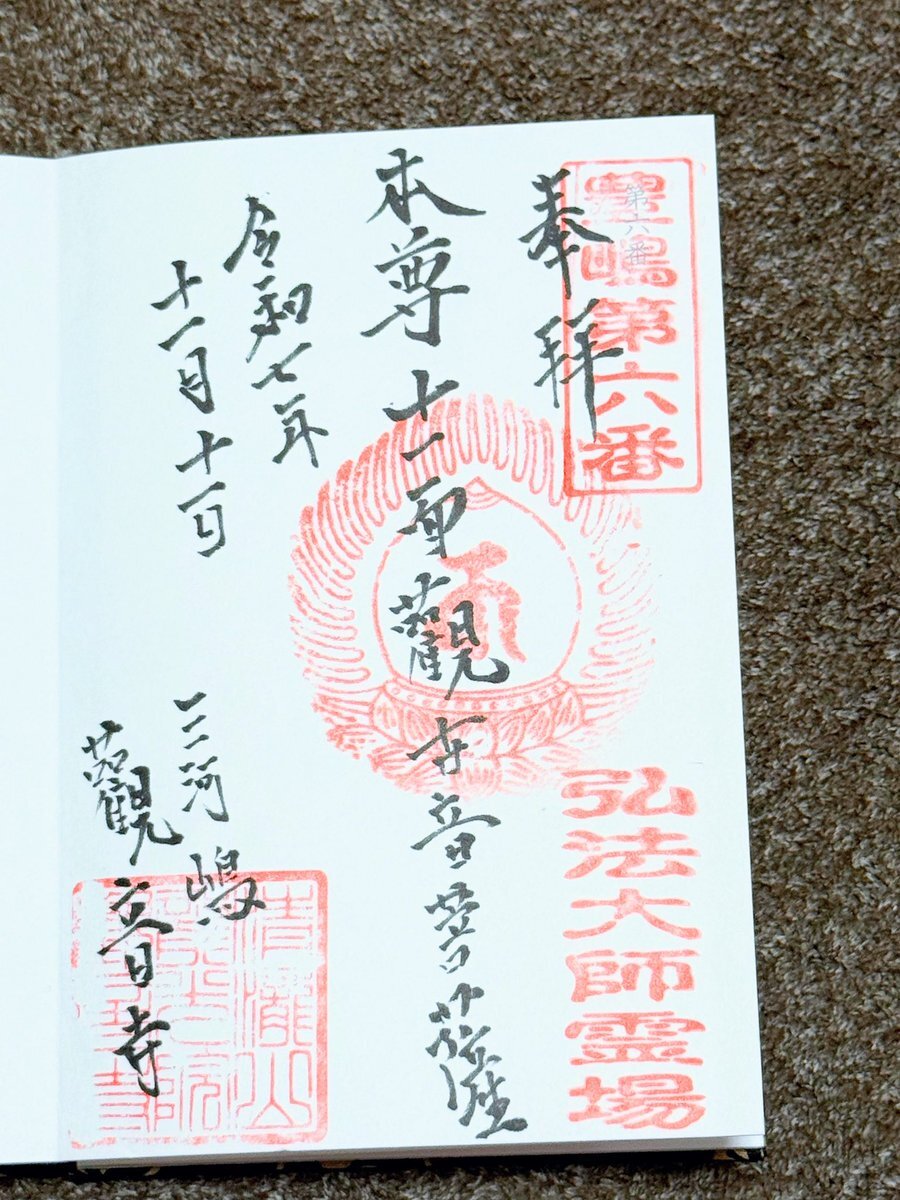 豊嶋第六番
第六番
弘法大師霊場
奉拝
本尊十一面觀世音菩薩
令和七年
十一月十一日
三河嶋
觀音寺
清瀧山